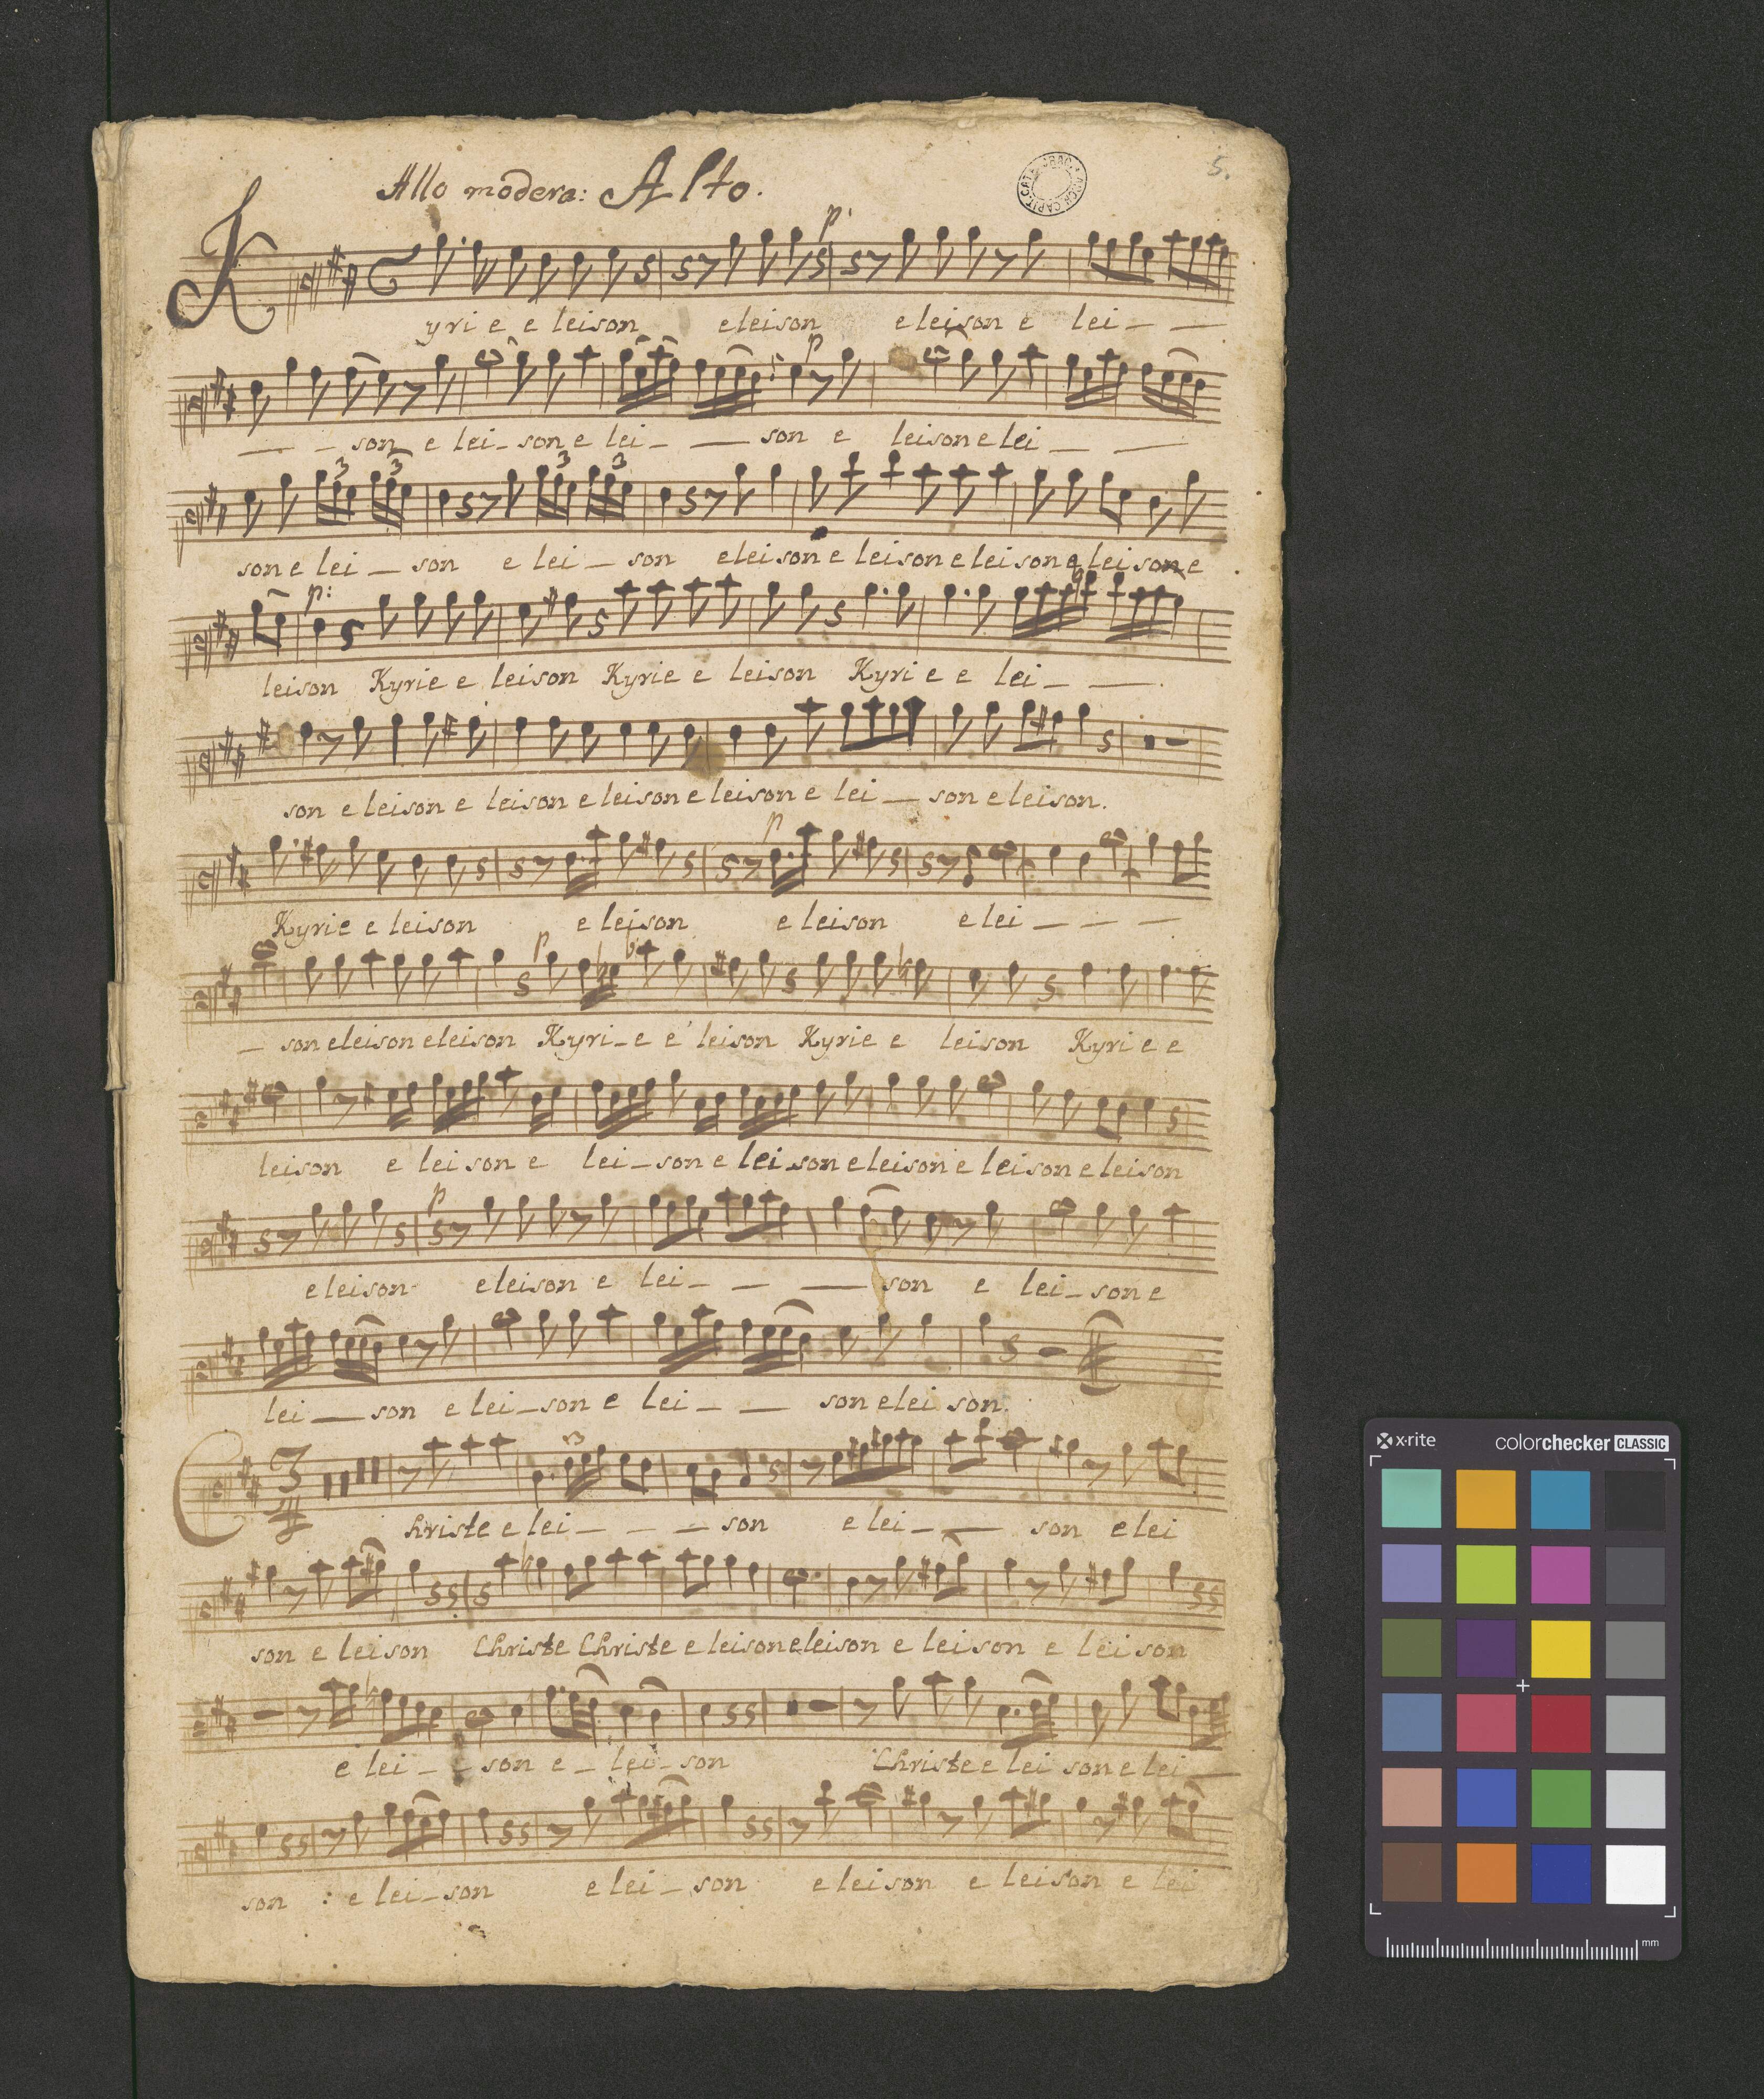 Allo modera: Alto.
5.
p.
Kyri e e leison eleison e leison e lei _ _
p
_ _ son e lei _ son e lei _ _ son e leison e lei _ _
3 3 3 3
son e lei _ son e lei _ son eleison e leison e leison e leison e
p:
leison Kyrie e leison Kyrie e leison Kyri e e lei _ _
son e leison e leison e leison e leison e lei _ son e leison.
p
Kyrie e leison e leison e leison e lei _ _ _
p
_ son eleison eleison Kyri_e e leison Kyrie e leison Kyri e e
leison e lei son e lei _ son e lei son e leison e leison e leison
p
e leison eleison e lei _ _ _ son e lei _ son e
lei _ son e lei _ son e lei _ _ son elei son.
3
Christe e lei _ _ _ son e lei _ _ son e lei
son e leison Christe Christe e leison eleison e leison e lei son
e lei _ _ son e _ lei _ son Christe e lei son e lei _
son : e lei _ son e lei _ son e leison e leison e lei
x·rite colorchecker CLASSIC
mm